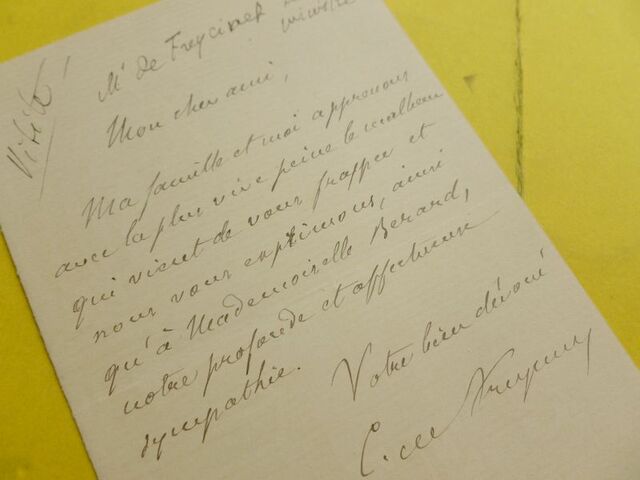 Visité
Mr de Freycinet
ministre
Mon cher ami,
Ma famille et moi apprenons
avec la plus vive peine le malheur
qui vient de vous frapper et
nous vous exprimons, ainsi
qu'à Mademoiselle Berard,
notre profonde et affectueuse
sympathie.
Votre bien dévoué
C. de Freycinet